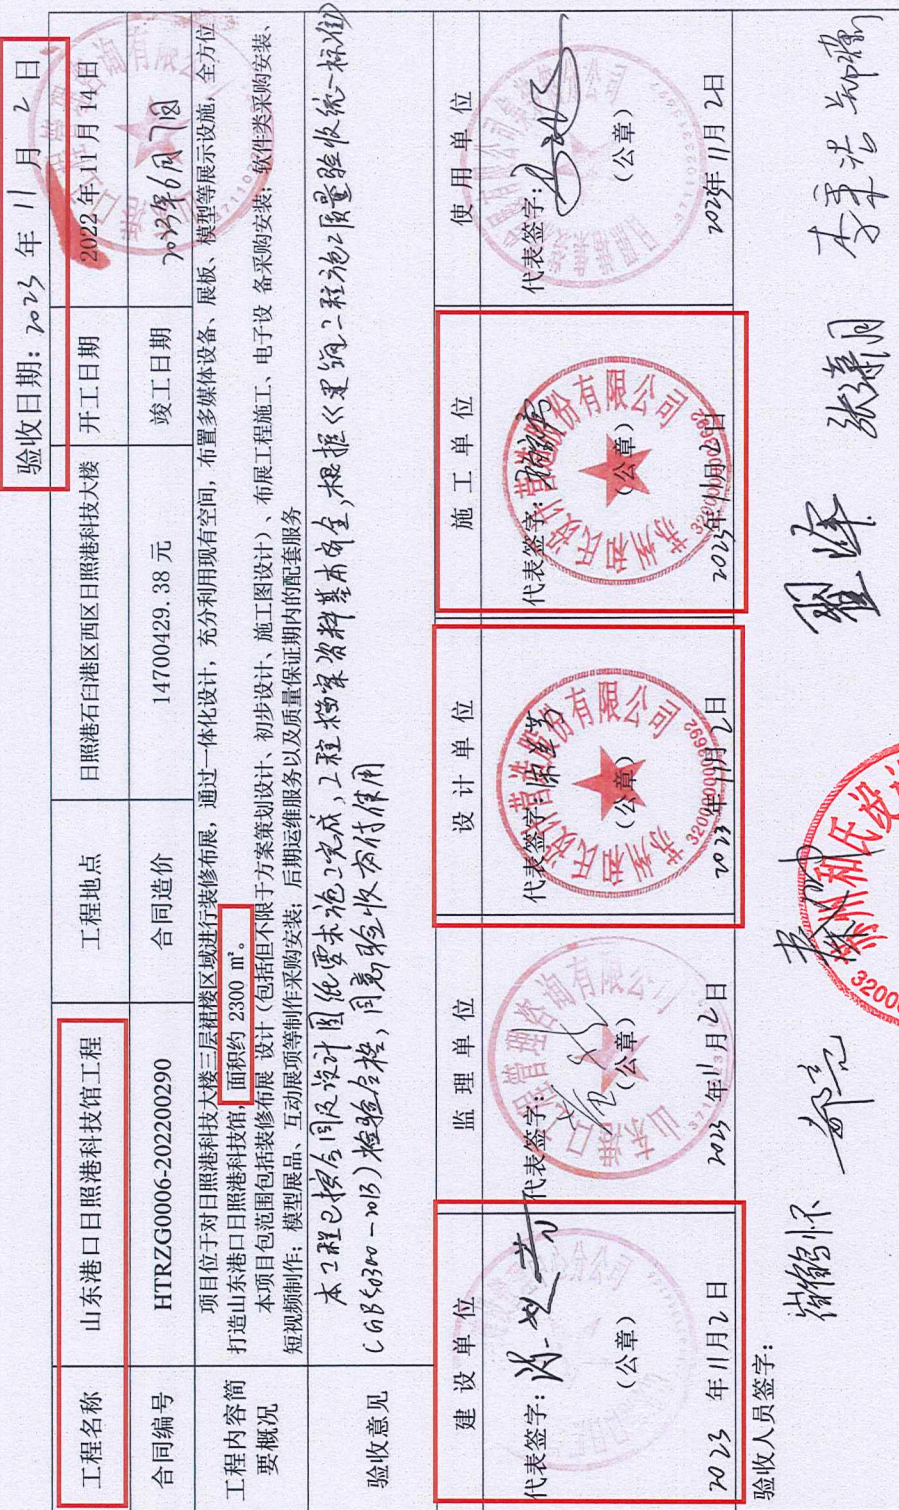 验收日期：2023 年 11 月 2 日
工程名称 山东港口日照港科技馆工程 工程地点 日照港石臼港区西区日照港科技大楼 开工日期 2022年11月14日
合同编号 HTRZG0006-202200290 合同造价 14700429.38 元 竣工日期 2023年6月7日
工程内容简要概况
项目位于对日照港科技大楼三层裙楼区域进行装修布展，通过一体化设计，充分利用现有空间，布置多媒体设备、展板、模型等展示设施，全方位
打造山东港口日照港科技馆，面积约 2300 m²。
本项目包范围包括装修布展 设计（包括但不限于方案策划设计、初步设计、施工图设计）、布展工程施工、电子设 备采购安装；软件类采购安装、
短视频制作；模型展品、互动展项等制作采购安装；后期运维服务以及质量保证期内的配套服务
验收意见
本工程已按合同及设计图纸要求施工完成，工程档案资料基本齐全，根据《建筑工程施工质量验收统一标准》
（GB50300-2013）检验合格，同意验收交付使用
建 设 单 位 监 理 单 位 设 计 单 位 施 工 单 位 使 用 单 位
代表签字： 代表签字： 代表签字： 代表签字： 代表签字：
（公章） （公章） （公章） （公章） （公章）
2023 年11月2日 2023 年11月2日 2023 年11月2日 2023年11月2日 2023年11月2日
苏州和氏设计营造股份有限公司
苏州和氏设计营造股份有限公司
验收人员签字：